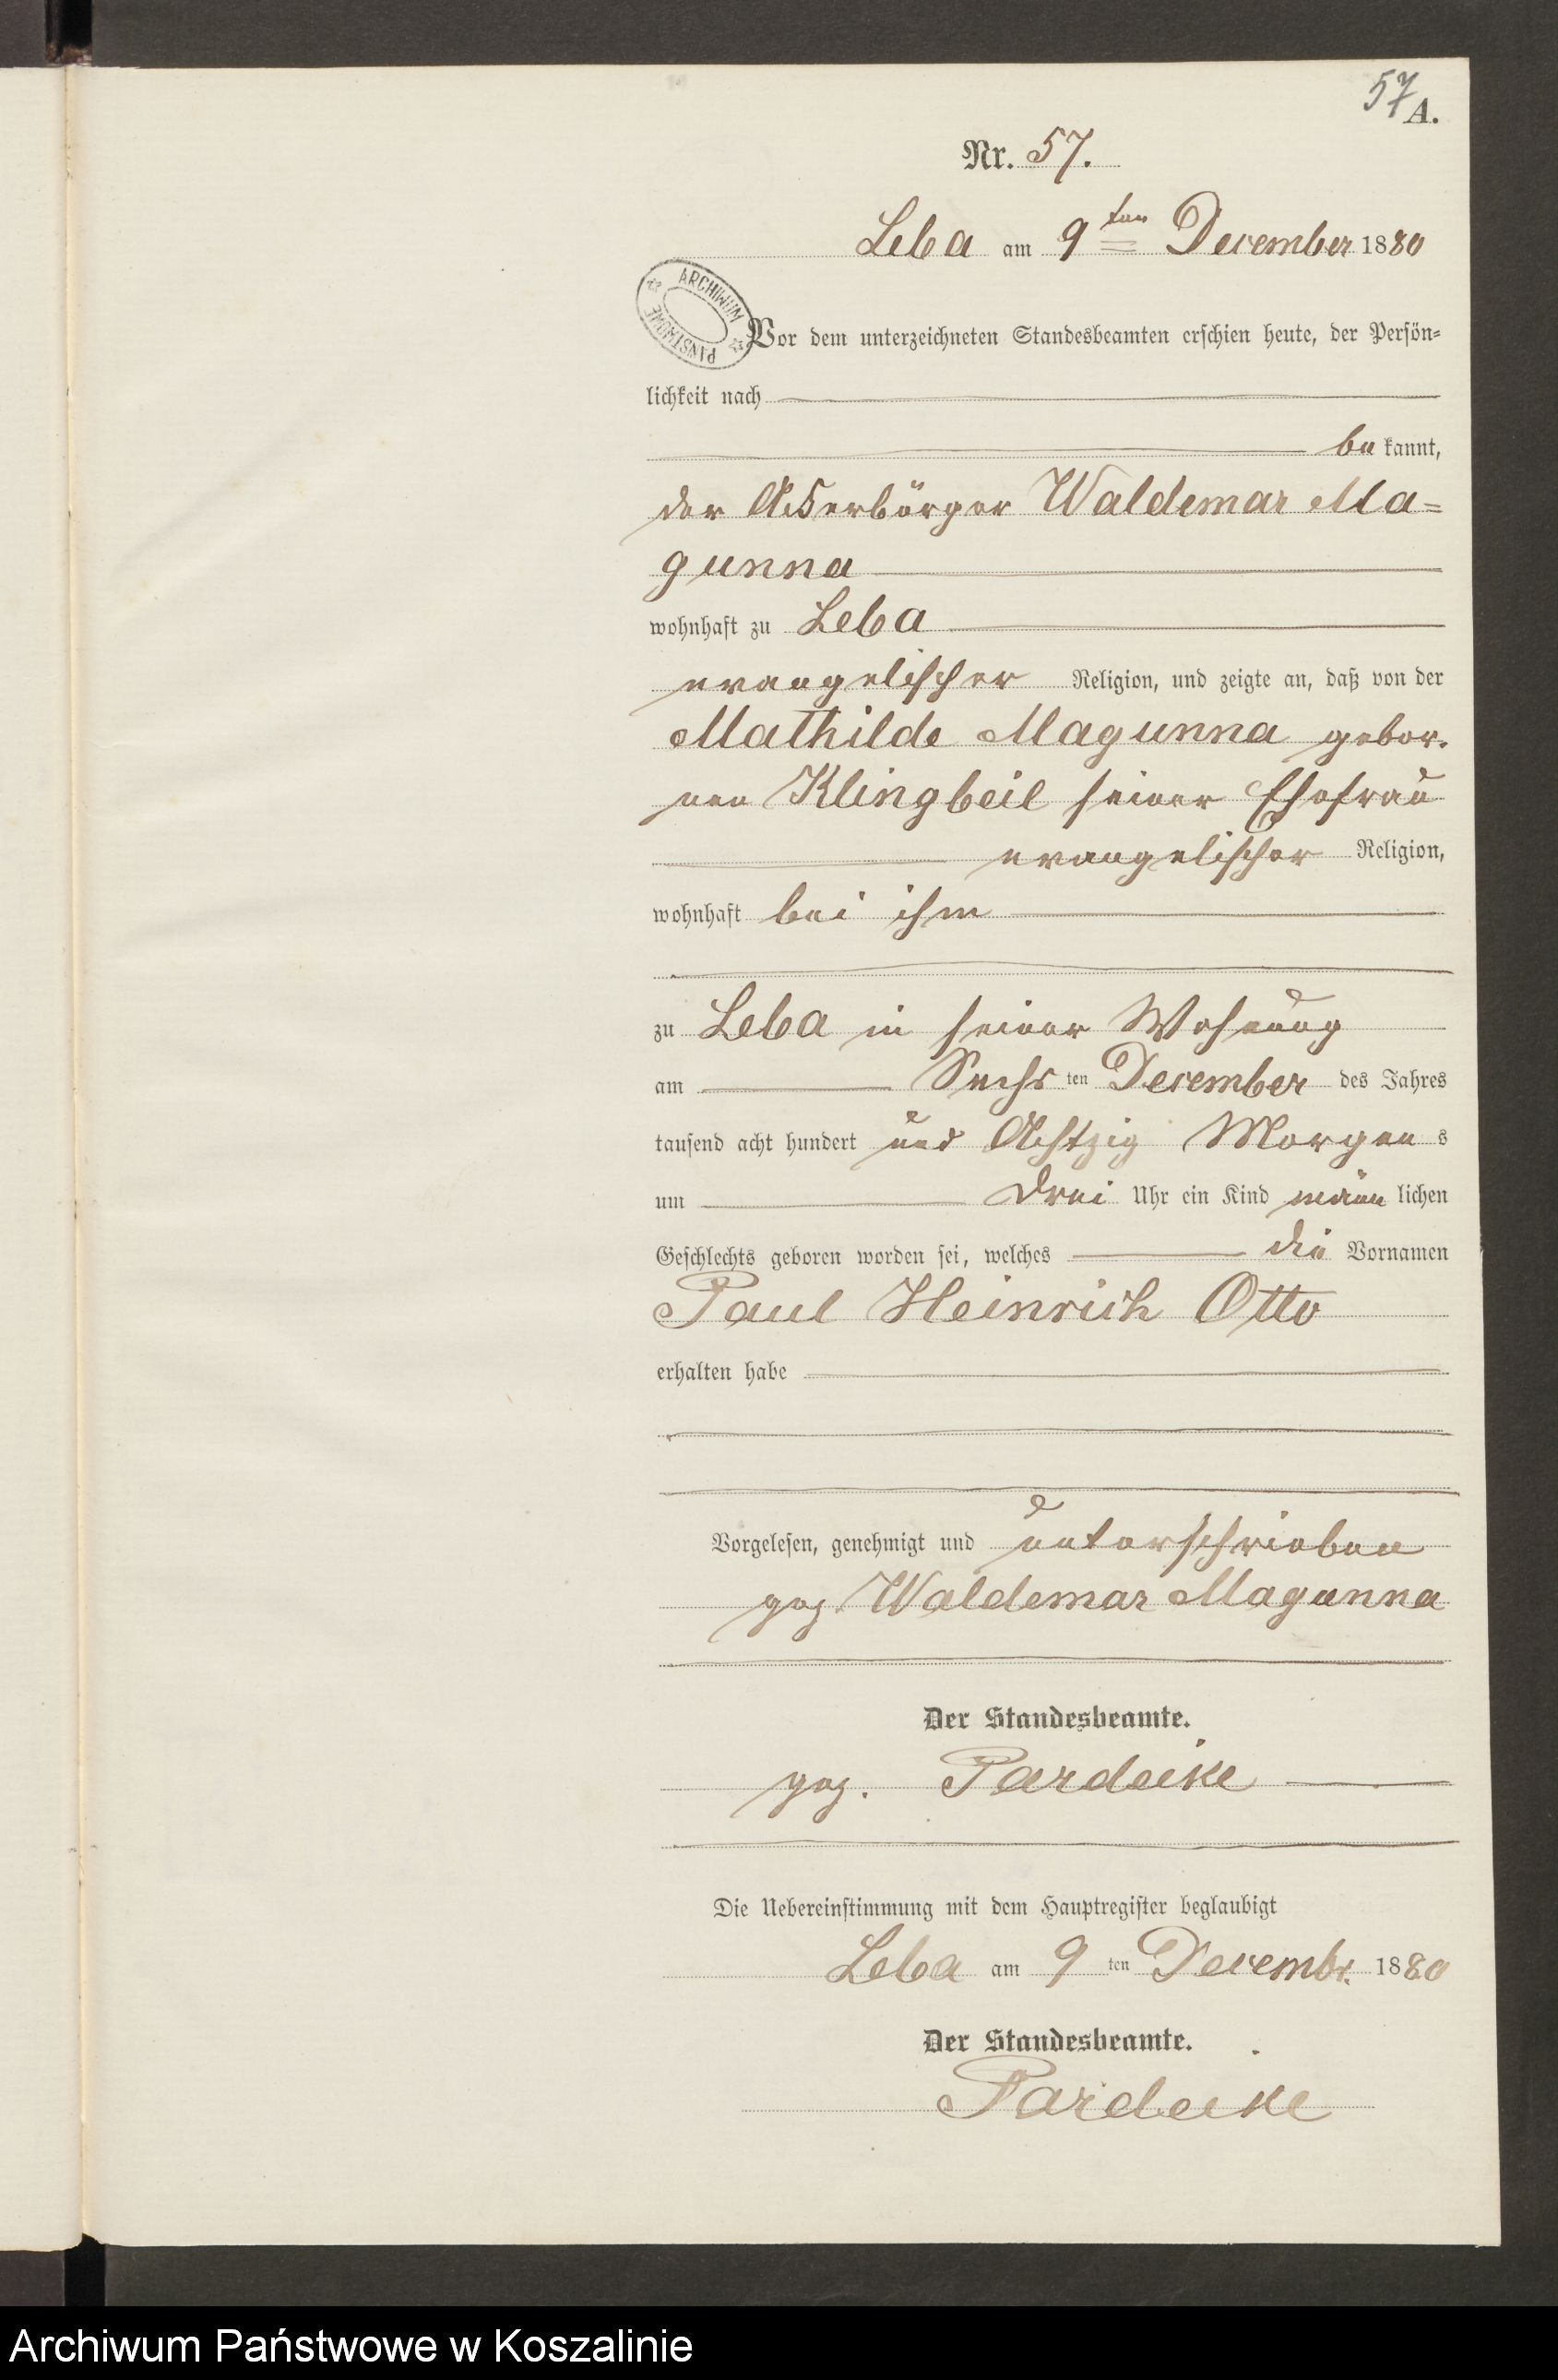 57
A.
Nr. 57.
Leba am 9ten December 1880
ARCHIWUM PAŃSTWOWE
Vor dem unterzeichneten Standesbeamten erschien heute, der Persön-
lichkeit nach
be kannt,
der Ackerbürger Waldemar Ma-
gunna
wohnhaft zu Leba
evangelischer Religion, und zeigte an, daß von der
Mathilde Magunna gebor-
nen Klingbeil seiner Ehefrau
evangelischer Religion,
wohnhaft bei ihm
zu Leba in seiner Wohnung
am Sechs ten December des Jahres
tausend acht hundert und Achtzig Morgen s
um Drei Uhr ein Kind männ lichen
Geschlechts geboren worden sei, welches die Vornamen
Paul Heinrich Otto
erhalten habe
Vorgelesen, genehmigt und unterschrieben
gez. Waldemar Magunna
Der Standesbeamte.
gez. Pardeike
Die Uebereinstimmung mit dem Hauptregister beglaubigt
Leba am 9 ten Decembr. 1880
Der Standesbeamte.
Pardeike
Archiwum Państwowe w Koszalinie